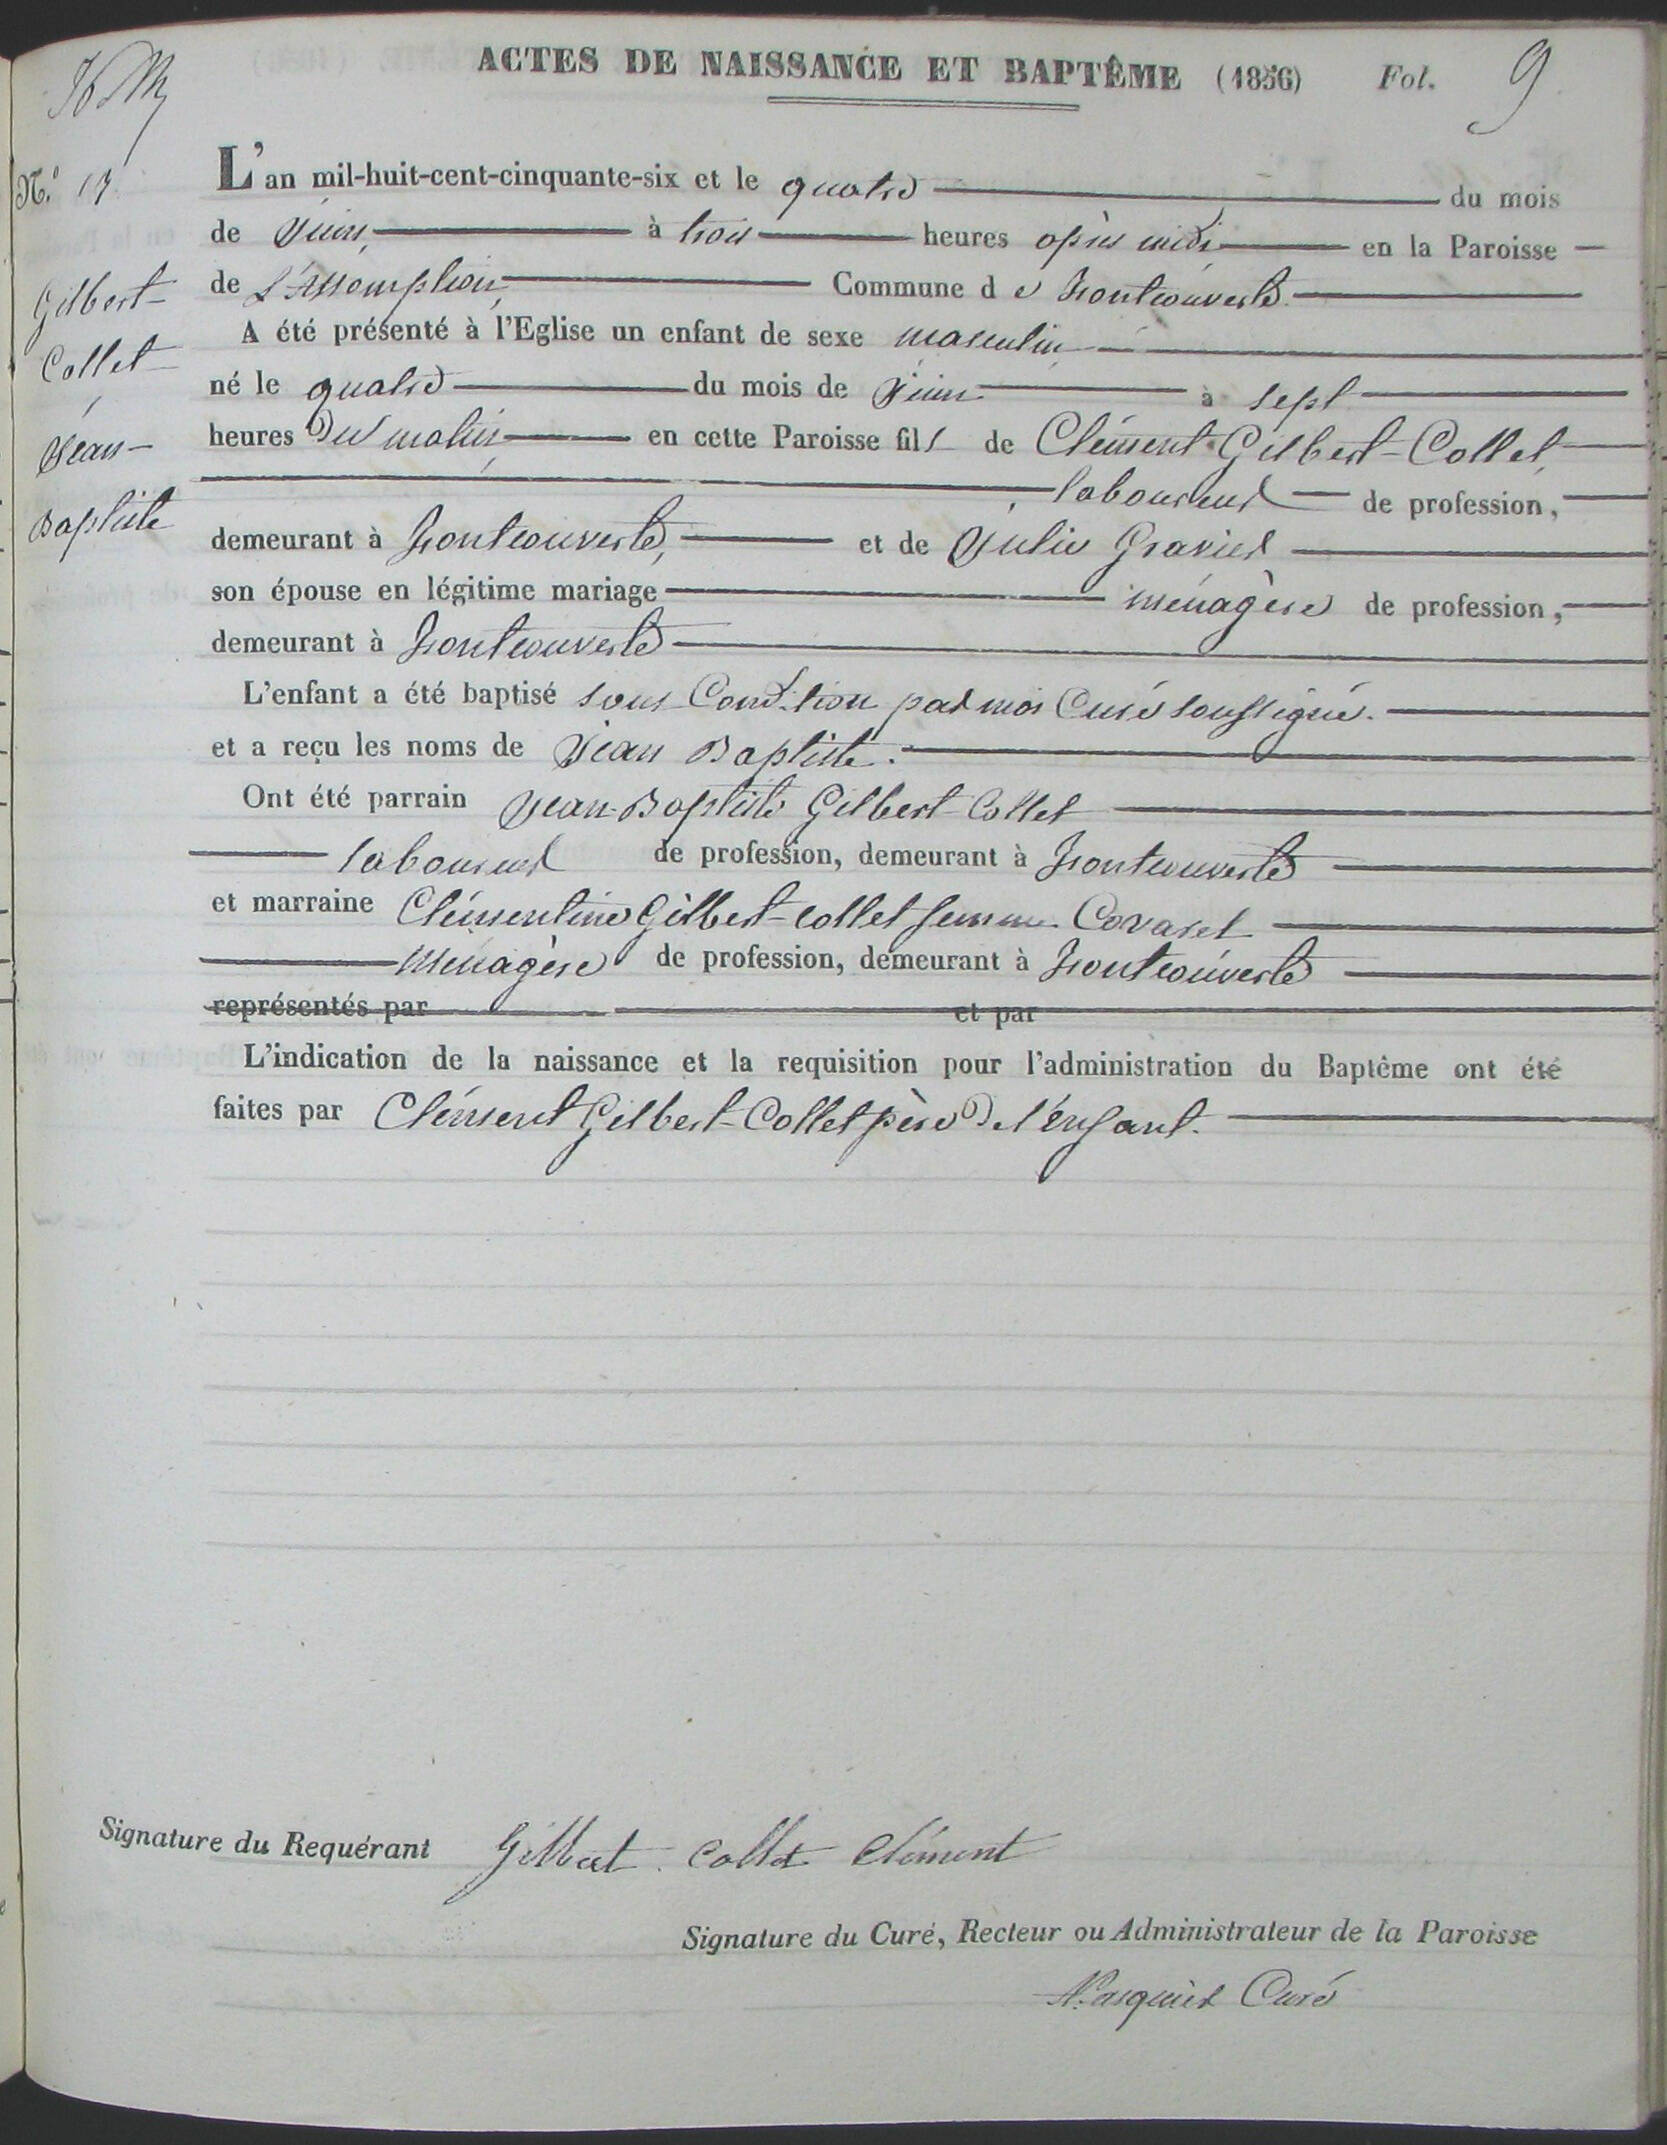 ACTES DE NAISSANCE ET BAPTÊME (1856) Fol. 9
N.º 17
L'an mil-huit-cent-cinquante-six et le quatre du mois
de Juin, à trois heures après midi, en la Paroisse
de L'Assomption, Commune de Montcouverte.
Gilbert-
Collet
Jean-
Baptiste
A été présenté à l'Eglise un enfant de sexe masculin
né le quatre du mois de Juin à sept
heures du matin, en cette Paroisse fils de Clément Gilbert-Collet,
laboureur de profession,
demeurant à Montcouverte, et de Julie Gravier
son épouse en légitime mariage ménagère de profession,
demeurant à Montcouverte
L'enfant a été baptisé sous Condition par moi Curé soussigné.
et a reçu les noms de Jean Baptiste.
Ont été parrain Jean-Baptiste Gilbert-Collet
laboureur de profession, demeurant à Montcouverte
et marraine Clémentine Gilbert-Collet femme Covarel
Ménagère de profession, demeurant à Montcouverte
représentés par et par
L'indication de la naissance et la requisition pour l'administration du Baptême ont été
faites par Clément Gilbert-Collet père de l'enfant.
Signature du Requérant Gilbert Collet Clément
Signature du Curé, Recteur ou Administrateur de la Paroisse
Curé